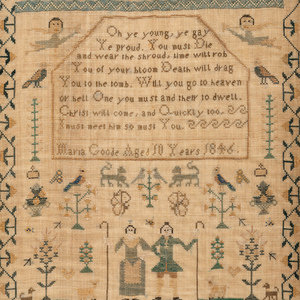 Oh ye young, ye gay
Ye proud. You must Die
and wear the shroud, time will rob
You of your bloom Death will drag
You to the tomb. Will you go to heaven
or hell One you must and their to dwell.
Christ will come, and Quickly too.
I must meet him so must You.
Maria Goode Aged 10 Years 1846.